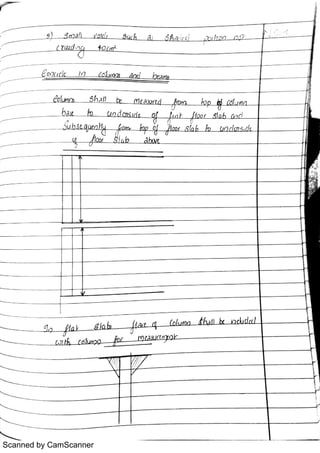 s) Small voids such as shaded portion
exceeding 40cm²
Concrete in columns and beams
Column shall be measured from top of column
base to underside of first floor slab and
Subsequently from top of floor slab to underside
of floor slab above
In flat slab flare of column shall be included
with column for measurement
Scanned by CamScanner